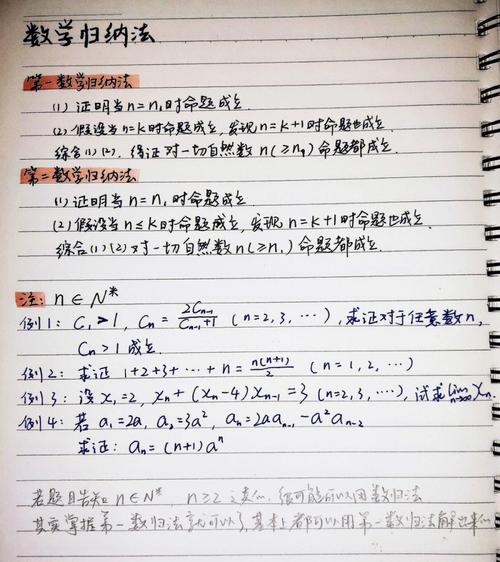 数学归纳法
第一数学归纳法
(1) 证明当n=n₁时命题成立.
(2) 假设当n=k时命题成立,发现n=k+1时命题也成立.
综合(1)(2), 得证对一切自然数n(≥n₁)命题都成立.
第二数学归纳法
(1) 证明当n=n₁时命题成立.
(2) 假设当n≤k时命题成立,发现n=k+1时命题也成立.
综合(1)(2)对一切自然数n(≥n₁)命题都成立.
注: n∈N*
例1: C₁>1, Cₙ=2Cₙ₋₁/(Cₙ₋₁+1) (n=2,3,…),求证对于任意数n,
Cₙ>1成立.
例2: 求证 1+2+3+…+n=n(n+1)/2 (n=1,2,…)
例3: 设x₁=2, xₙ+(xₙ-4)xₙ₋₁=3 (n=2,3,…),试求lim n→∞ xₙ.
例4: 若 a₁=2a, a₂=3a², aₙ=2aaₙ₋₁-a²aₙ₋₂
求证: aₙ=(n+1)aⁿ
若题目告知n∈N*, n≥2之类似,很可能可以用数归法
其实掌握第一数归法就可以了,基本上都可以用第一数归法解出来